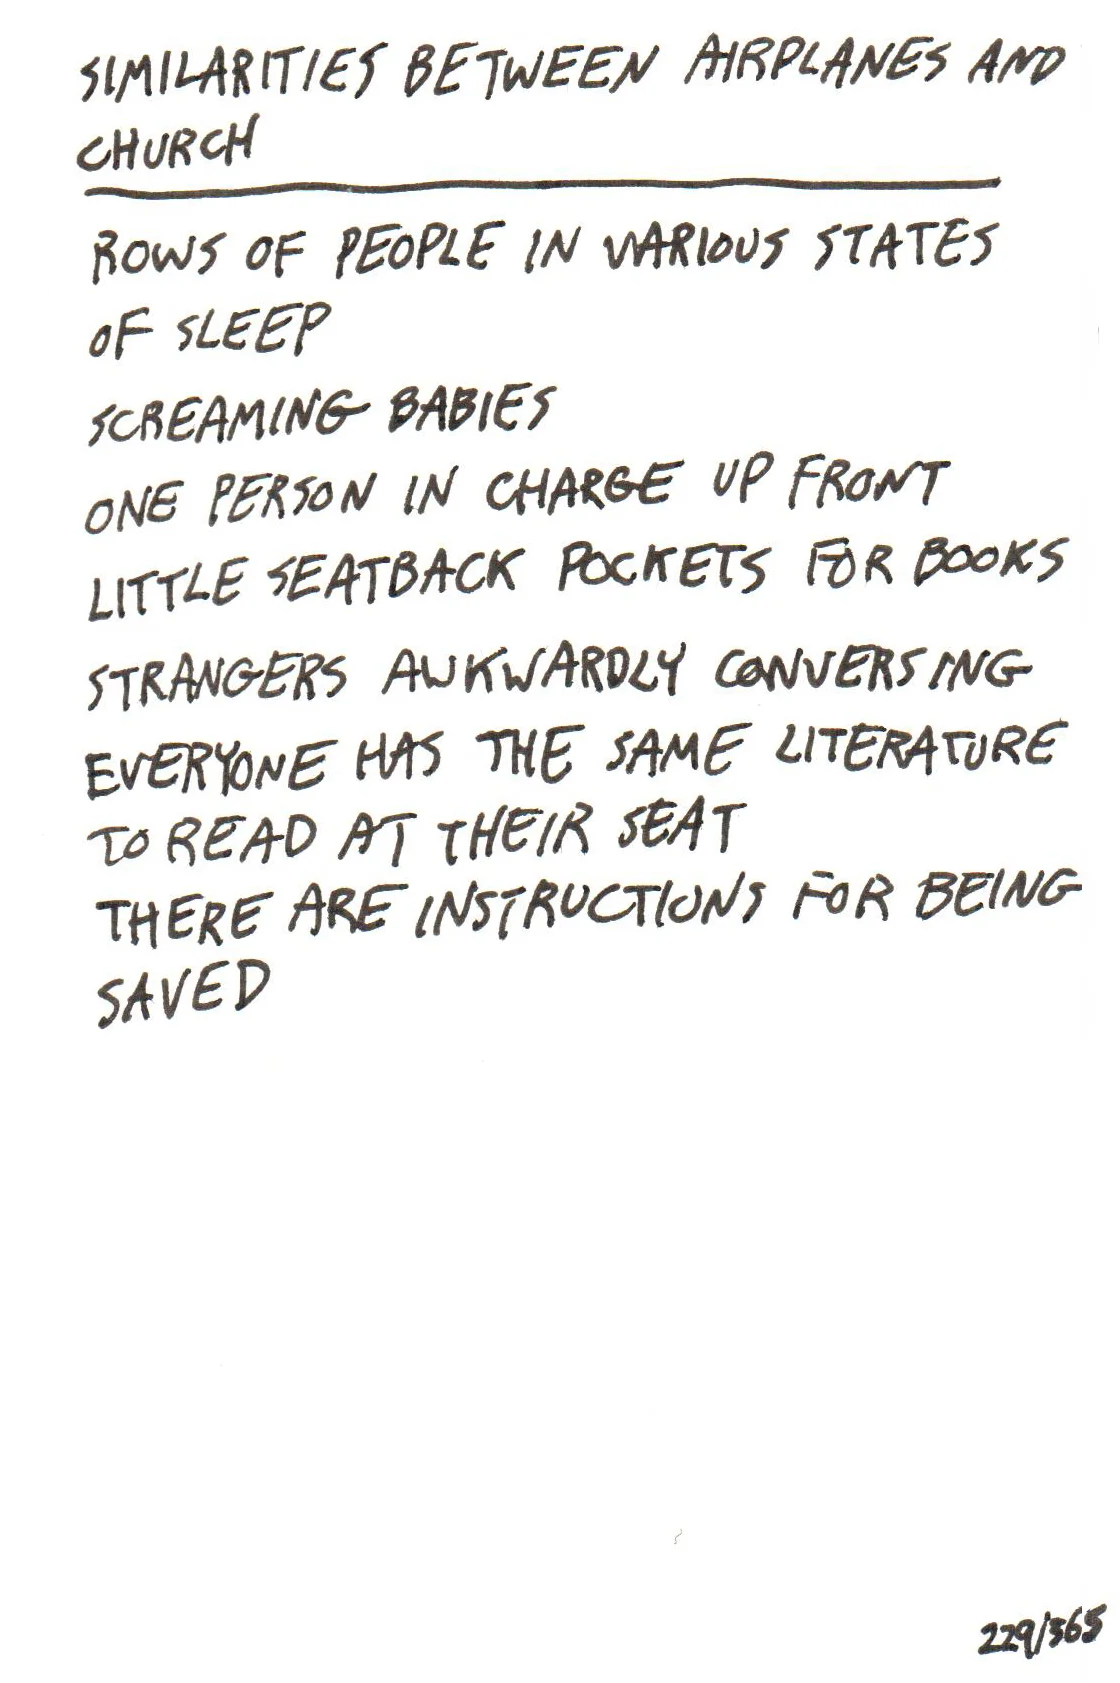 SIMILARITIES BETWEEN AIRPLANES AND
CHURCH
ROWS OF PEOPLE IN VARIOUS STATES
OF SLEEP
SCREAMING BABIES
ONE PERSON IN CHARGE UP FRONT
LITTLE SEATBACK POCKETS FOR BOOKS
STRANGERS AWKWARDLY CONVERSING
EVERYONE HAS THE SAME LITERATURE
TO READ AT THEIR SEAT
THERE ARE INSTRUCTIONS FOR BEING
SAVED
229/365